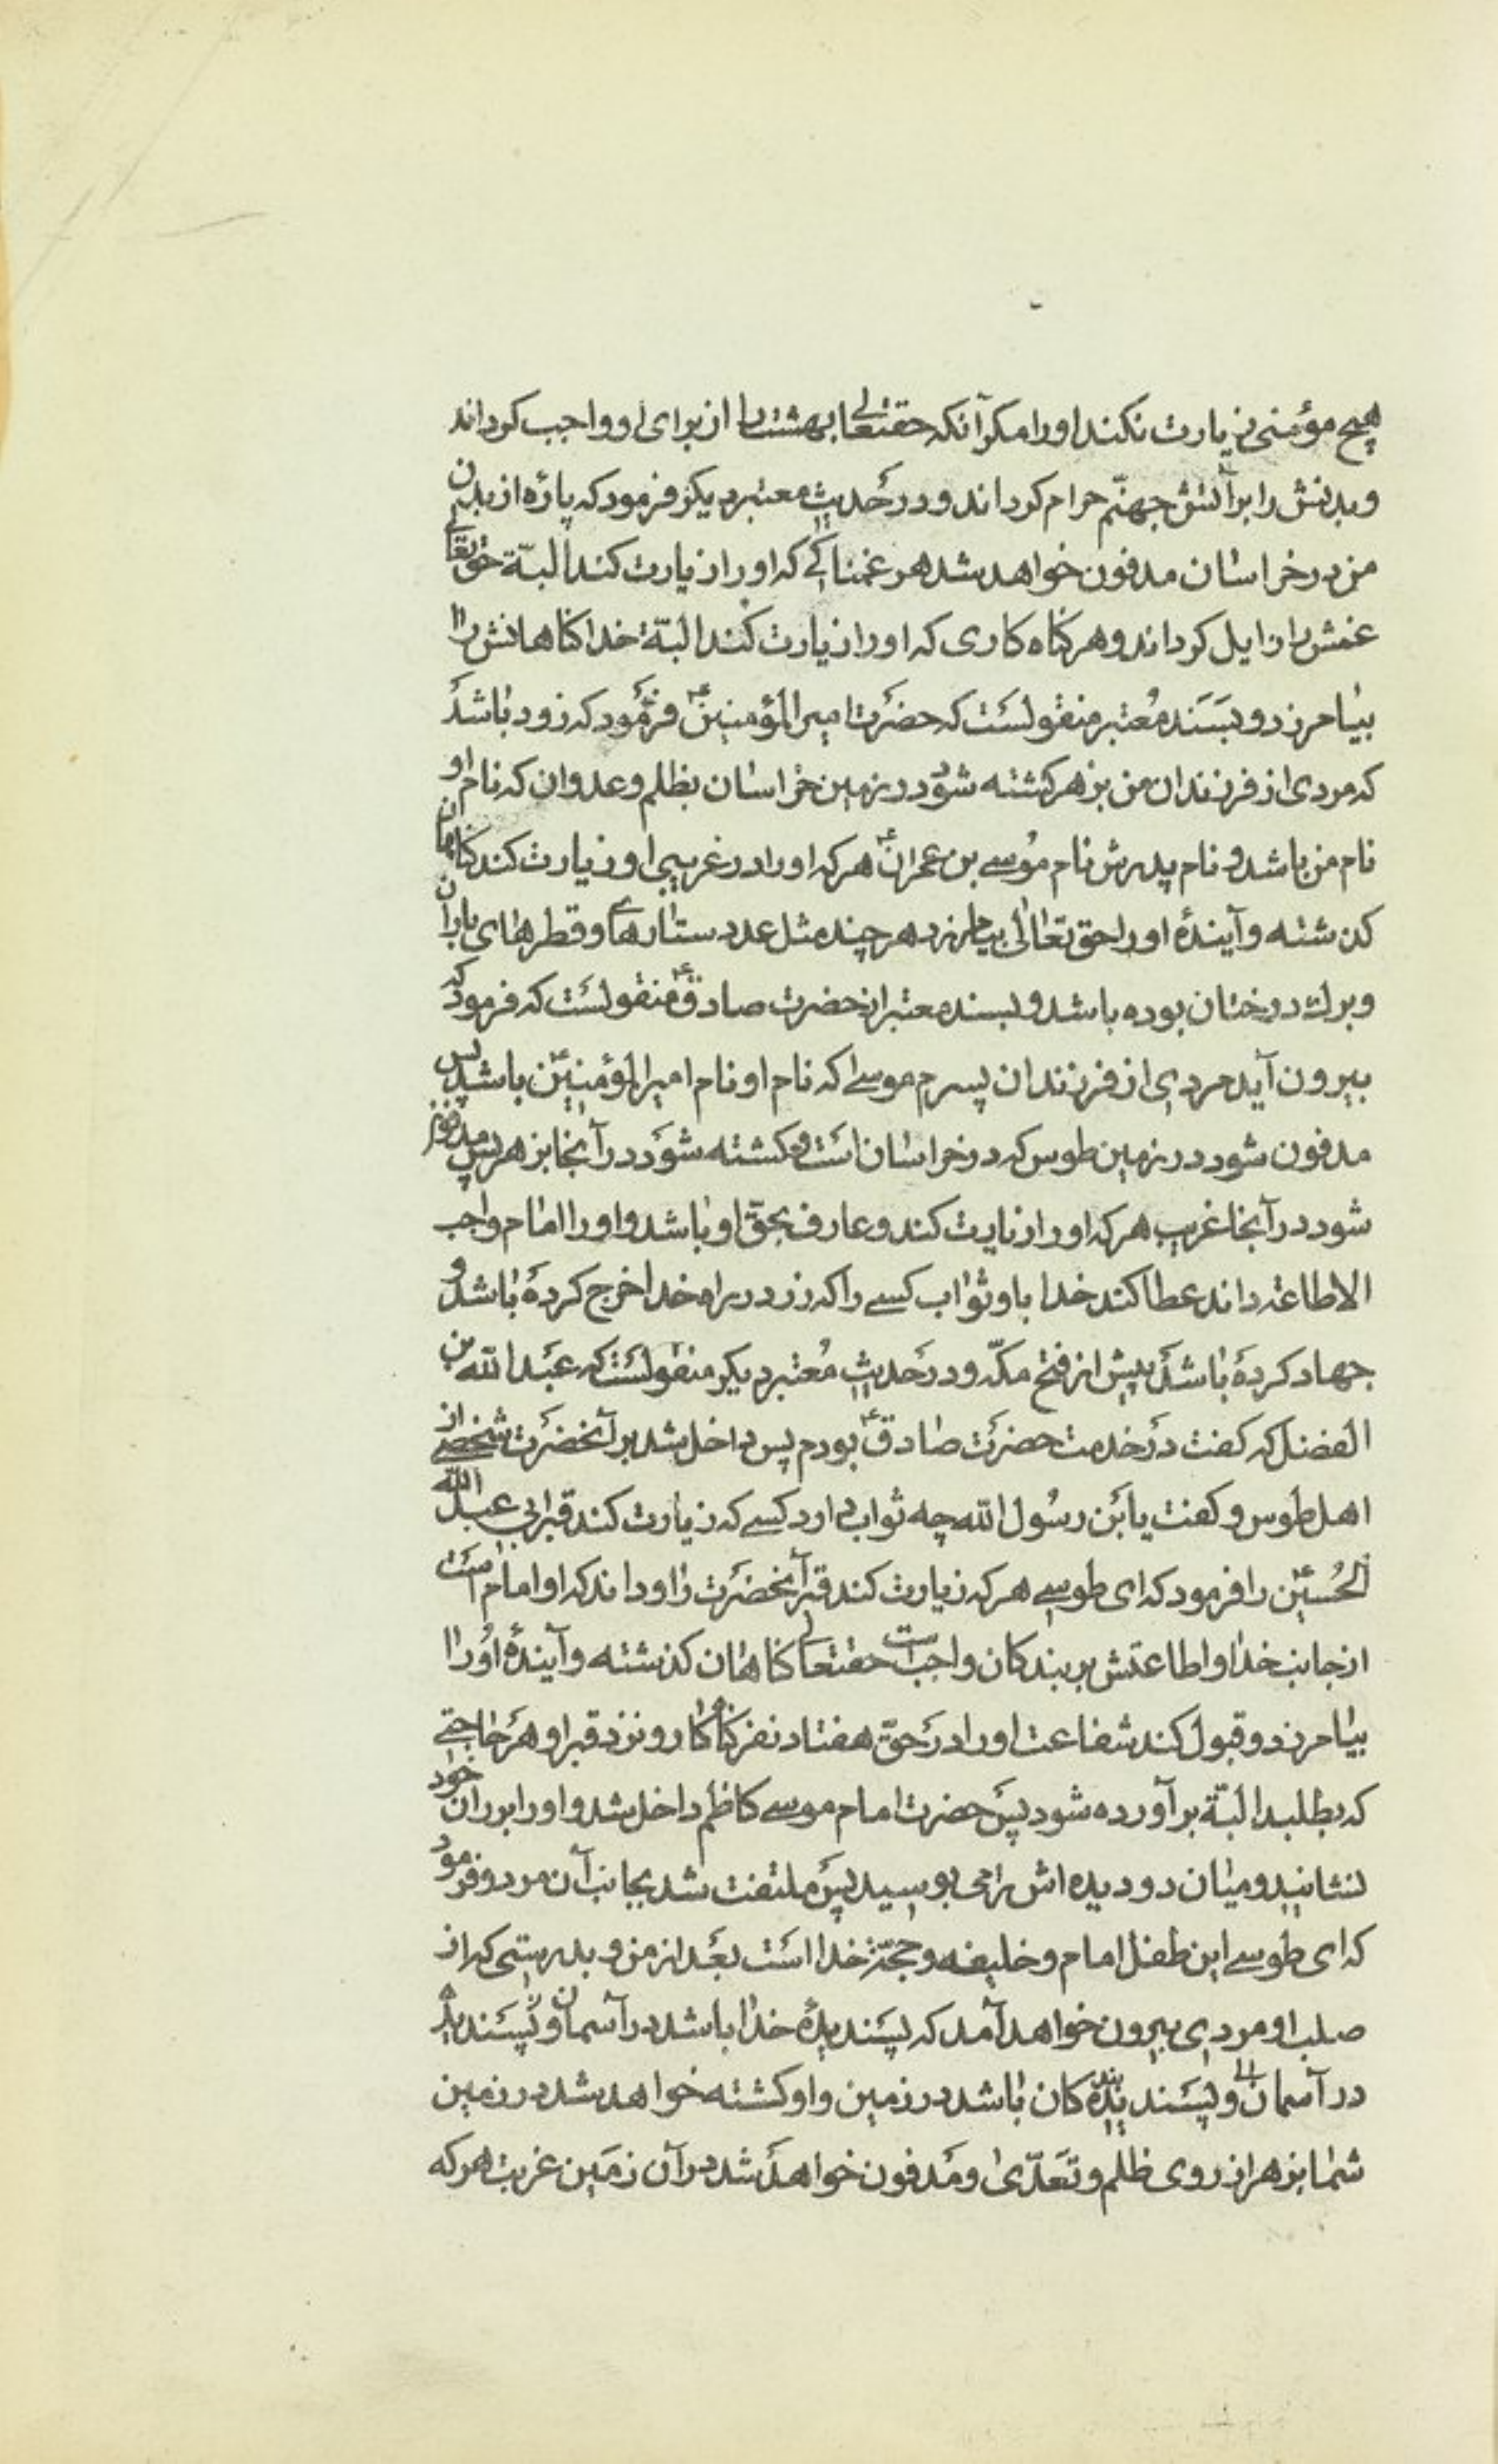 هیچ مؤمنی زیارت نکند اورا مکر آنکه حقتعالی بهشت را از برای او واجب کرداند
وبدنش را بر آتش جهنّم حرام کرداند ودر حدیث معتبر دیکر فرمود که پارهٔ از بدن
من در خراسان مدفون خواهد شد هر غمناکے که اورا زیارت کند البتّة حقتعالی
غمش را زایل کرداند وهر کناه کاری که اورا زیارت کند البتّة خدا کناهانش را
بیامرزد وبسند معتبر منقولست که حضرت امیر المؤمنینؑ فرمود که زود باشد
که مردی از فرزندان من بزهر کشته شود در زمین خراسان بظلم وعدوان که نام او
نام من باشد و نام پدرش نام موسے بن عمرانؑ هرکه اورا در غریبی او زیارت کند کناهان
کذشته وآیندهٔ اورا حق تعالی بیامرزد هر چند مثل عدد ستارهای وقطرهای باران
وبرك درختان بوده باشد وبسند معتبر از حضرت صادقؑ منقولست که فرمود که
بیرون آید مردی از فرزندان پسرم موسے که نام او نام امیر المؤمنینؑ باشد پس
مدفون شود در زمین طوس که در خراسان است و کشته شود در آنجا بزهر پس مدفون
شود در آنجا غریب هرکه اورا زیارت کند وعارف بحقّ او باشد واورا امام واجب
الاطاعة داند عطا کند خدا باو ثواب کسے را که زر در راه خدا خرج کرده باشد و
جهاد کرده باشد پیش از فتح مکّه ودر حدیث معتبر دیکر منقولست که عبد الله بن
الفضل که کفت در خدمت حضرت صادقؑ بودم پس داخل شد بر آنحضرت شخصے از
اهل طوس وکفت یابن رسول الله چه ثواب دارد کسے که زیارت کند قبر ابی عبد الله
الحسینؑ را فرمود که ای طوسے هرکه زیارت کند قبر آنحضرت را وداند که او امام است
از جانب خدا واطاعتش بر بندکان واجب است حقتعالی کناهان کذشته وآیندهٔ اورا
بیامرزد وقبول کند شفاعت اورا در حقّ هفتاد نفر کناه کار ونزد قبر او هر حاجتے
که بطلبد البتّة بر آورده شود پس حضرت امام موسے کاظم داخل شد واورا بر ران خود
نشانید ومیان دو دیده اش را می بوسید پس ملتفت شد بجانب آن مرد وفرمود
که ای طوسے این طفل امام وخلیفه وحجّة خدا است بعد از من و بدرستی که از
صلب او مردی بیرون خواهد آمد که پسندیدهٔ خدا باشد در آسمان وپسندیدهٔ
در آسمان وپسندیدهٔ بندکان باشد در زمین واو کشته خواهد شد در زمین
شما بزهر از روی ظلم وتعدّی ومدفون خواهد شد در آن زمین غریب هرکه